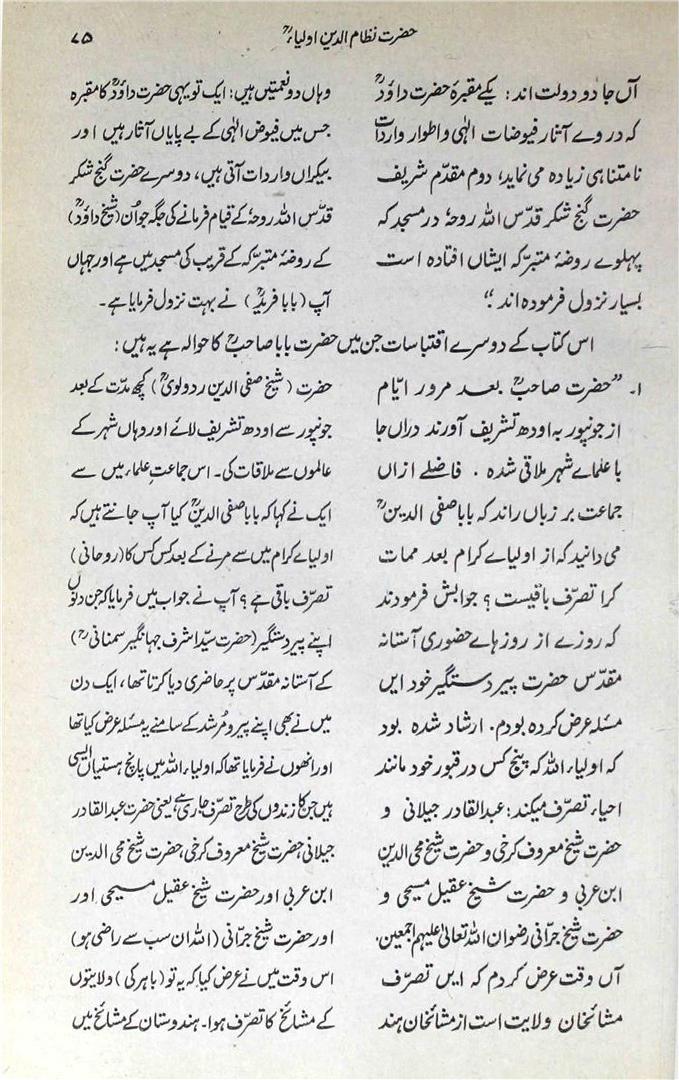 حضرت نظام الدین اولیاءؒ
۷۵
آں جا دو دولت اند: یکے مقبرۂ حضرت داؤدؒ
کہ در وے آثار فیوضات الٰہی و اطوار واردات
نامتناہی زیادہ می نماید، دوم مقدّم شریف
حضرت گنج شکر قدّس اللہ روحہٗ در مسجد کہ
پہلوے روضۂ متبرّکہ ایشاں افتادہ است
بسیار نزول فرمودہ اند۔"
وہاں دو نعمتیں ہیں: ایک تو یہی حضرت داؤدؒ کا مقبرہ
جس میں فیوض الٰہی کے بے پایاں آثار ہیں اور
بیکراں واردات آتی ہیں، دوسرے حضرت گنج شکر
قدّس اللہ روحہٗ کے قیام فرمانے کی جگہ جو اُن (شیخ داؤدؒ)
کے روضۂ متبرّکہ کے قریب کی مسجد میں ہے اور جہاں
آپ (بابا فریدؒ) نے بہت نزول فرمایا ہے۔
اس کتاب کے دوسرے اقتباسات جن میں حضرت بابا صاحبؒ کا حوالہ ہے یہ ہیں:
۱۔ "حضرت صاحبؒ بعد مرور ایّام
از جونپور بہ اودھ تشریف آورند دراں جا
باعلماے شہر ملاقی شدہ۔ فاضلے ازاں
جماعت بر زباں راند کہ بابا صفی الدینؒ
می دانید کہ از اولیاے کرام بعد ممات
کرا تصرّف باقیست؟ جوابش فرمودند
کہ روزے از روزہاے حضوری آستانہ
مقدّس حضرت پیر دستگیر خود ایں
مسئلہ عرض کردہ بودم۔ ارشاد شدہ بود
کہ اولیاء اللہ کہ پنج کس در قبور خود مانند
احیاء تصرّف میکند: عبدالقادر جیلانی و
حضرت شیخ معروف کرخی و حضرت شیخ محی الدین
ابن عربی و حضرت شیخ عقیل مسیحی و
حضرت شیخ جرّانی رضوان اللہ تعالیٰ علیہم اجمعین۔
آں وقت عرض کردم کہ ایں تصرّف
مشائخان ولایت است از مشائخان ہند
حضرت (شیخ صفی الدین ردولویؒ) کچھ مدّت کے بعد
جونپور سے اودھ تشریف لائے اور وہاں شہر کے
عالموں سے ملاقات کی۔ اس جماعتِ علماء میں سے
ایک نے کہا کہ بابا صفی الدینؒ کیا آپ جانتے ہیں کہ
اولیاے کرام میں سے مرنے کے بعد کس کس کا (روحانی)
تصرّف باقی ہے؟ آپ نے جواب میں فرمایا کہ جن دنوں
اپنے پیر دستگیر (حضرت سیّد اشرف جہانگیر سمنانیؒ)
کے آستانہ مقدّس پر حاضری دیا کرتا تھا، ایک دن
میں نے بھی اپنے پیر و مرشد کے سامنے یہ مسئلہ عرض کیا تھا
اور انھوں نے فرمایا تھا کہ اولیاء اللہ میں پانچ ہستیاں ایسی
ہیں جن کا زندوں کی طرح تصرّف جاری ہے، یعنی حضرت عبدالقادر
جیلانی، حضرت شیخ معروف کرخی، حضرت شیخ محی الدین
ابن عربی اور حضرت شیخ عقیل مسیحی اور
اور حضرت شیخ جرّانی (اللہ ان سب سے راضی ہو)
اس وقت میں نے عرض کیا کہ یہ تو (باہر کی) ولایتوں
کے مشائخ کا تصرّف ہوا۔ ہندوستان کے مشائخ میں